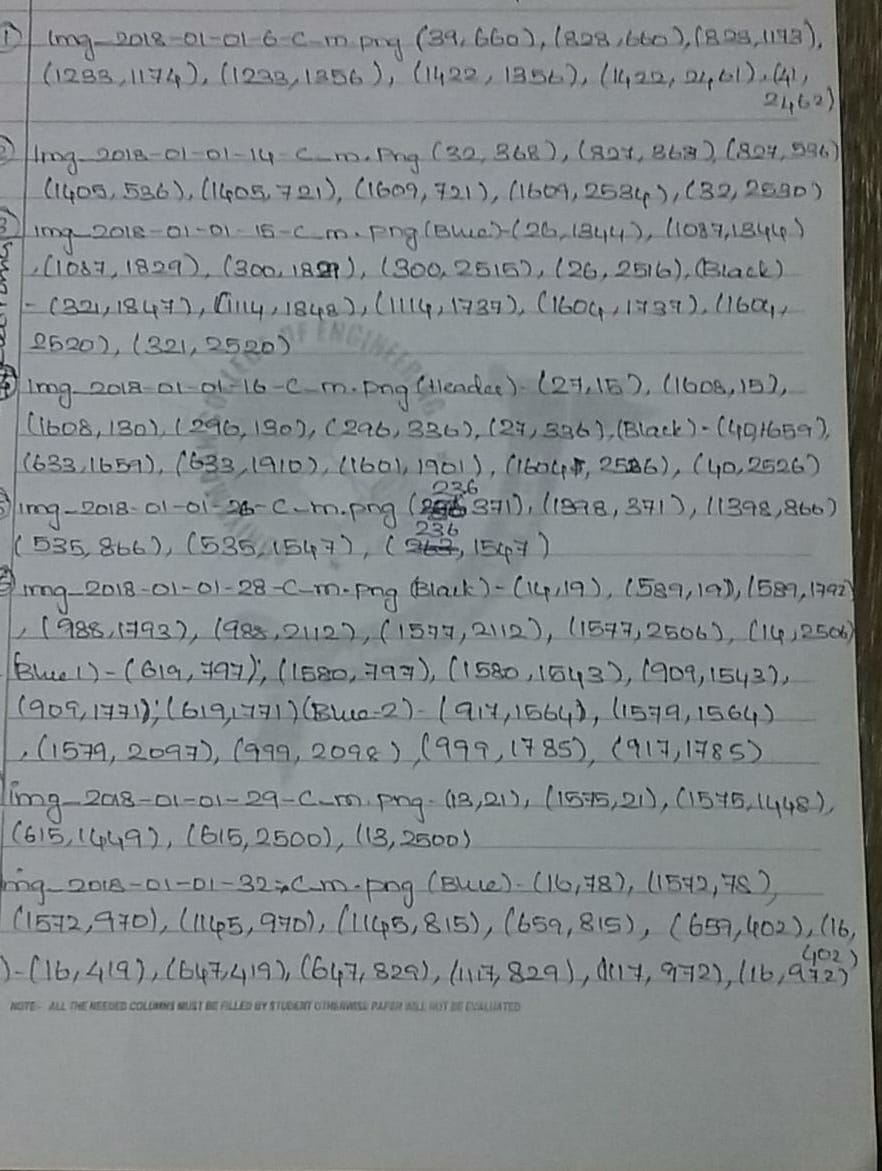 1) Img_2018-01-01-6-C-m.png (39,660), (828,660), (828,1193),
(1233,1174), (1233,1356), (1422,1356), (1422,2461), (41,
2462)
2) Img_2018-01-01-14-C-m.png (32,368), (827,368), (827,536)
(1405,536), (1405,721), (1609,721), (1609,2534), (32,2530)
3) Img_2018-01-01-15-C-m.png (Blue)-(26,1344), (1087,1344)
,(1087,1829), (300,1829), (300,2515), (26,2516), (Black)
-(321,1847), (1114,1848), (1114,1737), (1604,1737), (1604,
2520), (321,2520)
OF ENGINEERING
4) Img_2018-01-01-16-C-m.png (Header)-(27,15), (1608,15),
(1608,130), (296,130), (296,336), (27,336), (Black)-(40,1659),
(633,1659), (633,1910), (1601,1901), (1604, 2526), (40,2526)
236
Img_2018-01-01-26-C-m.png ( 371), (1398,371), (1398,866)
236
(535,866), (535,1547), ( ,1547)
Img_2018-01-01-28-C-m.png (Black)-(14,19), (589,19), (589,1792)
,(988,1793), (988,2112), (1577,2112), (1577,2506), (14,2506)
(Blue1)-(619,797), (1580,797), (1580,1543), (909,1543),
(909,1771); (619,1771) (Blue-2)-(917,1564), (1579,1564)
,(1579,2097), (999,2098), (999,1785), (917,1785)
Img_2018-01-01-29-C-m.png-(13,21), (1575,21), (1575,1448),
(615,1449), (615,2500), (13,2500)
mg_2018-01-01-32-C-m.png (Blue)-(16,78), (1572,78),
(1572,970), (1145,970), (1145,815), (659,815), (659,402), (16,
402)
)-(16,419), (647,419), (647,829), (1117,829), (1117,972), (16,972)
NOTE:- ALL THE NEEDED COLUMNS MUST BE FILLED BY STUDENT OTHERWISE PAPER WILL NOT BE EVALUATED